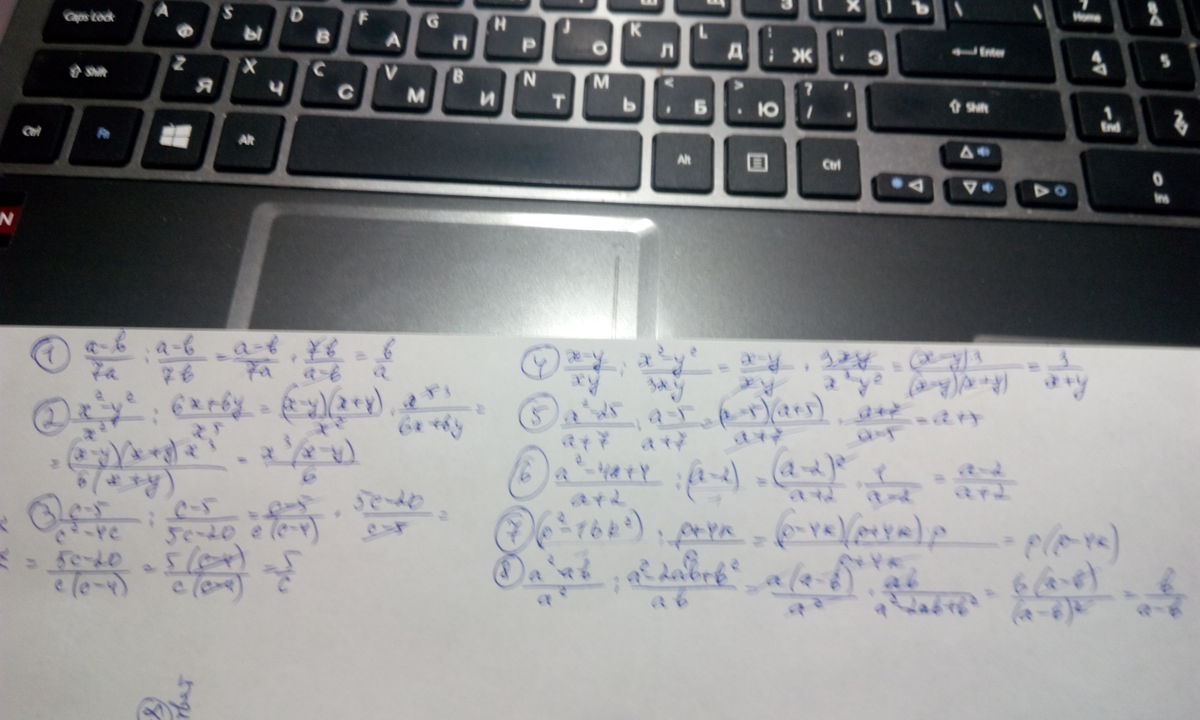 Caps Lock A Ф S Ы D В F А G П H Р J О K Л L Д : ; Ж " ' Э Enter 7 Home 8
Shift Z Я X Ч C С V М B И N Т M Ь < , Б > . Ю ? / , . Shift 4 5
Ctrl Fn Alt Alt Ctrl 1 End 2
0 Ins
N
① (a-b)/7a : (a-b)/7b = (a-b)/7a · 7b/(a-b) = b/a
② (x²-y²)/x² : (6x+6y)/x⁵ = (x-y)(x+y)/x² · x⁵ ³/(6x+6y) =
= (x-y)(x+y)x³/6(x+y) = x³(x-y)/6
③ (c-5)/(c²-4c) : (c-5)/(5c-20) = (c-5)/c(c-4) · (5c-20)/(c-5) =
= (5c-20)/c(c-4) = 5(c-4)/c(c-4) = 5/c
④ (x-y)/xy : (x²-y²)/3xy = (x-y)/xy · 3xy/(x²-y²) = (x-y)3/(x-y)(x+y) = 3/(x+y)
⑤ (a²-25)/(a+7) : (a-5)/(a+7) = (a-5)(a+5)/(a+7) · (a+7)/(a-5) = a+5
⑥ (a²-4a+4)/(a+2) : (a-2) = (a-2)²/(a+2) · 1/(a-2) = (a-2)/(a+2)
⑦ (p²-16k²) : (p+4k)/p = (p-4k)(p+4k)p/(p+4k) = p(p-4k)
⑧ (a²-ab)/a² : (a²-2ab+b²)/ab = a(a-b)/a² · ab/(a²-2ab+b²) = b(a-b)/(a-b)² = b/(a-b)